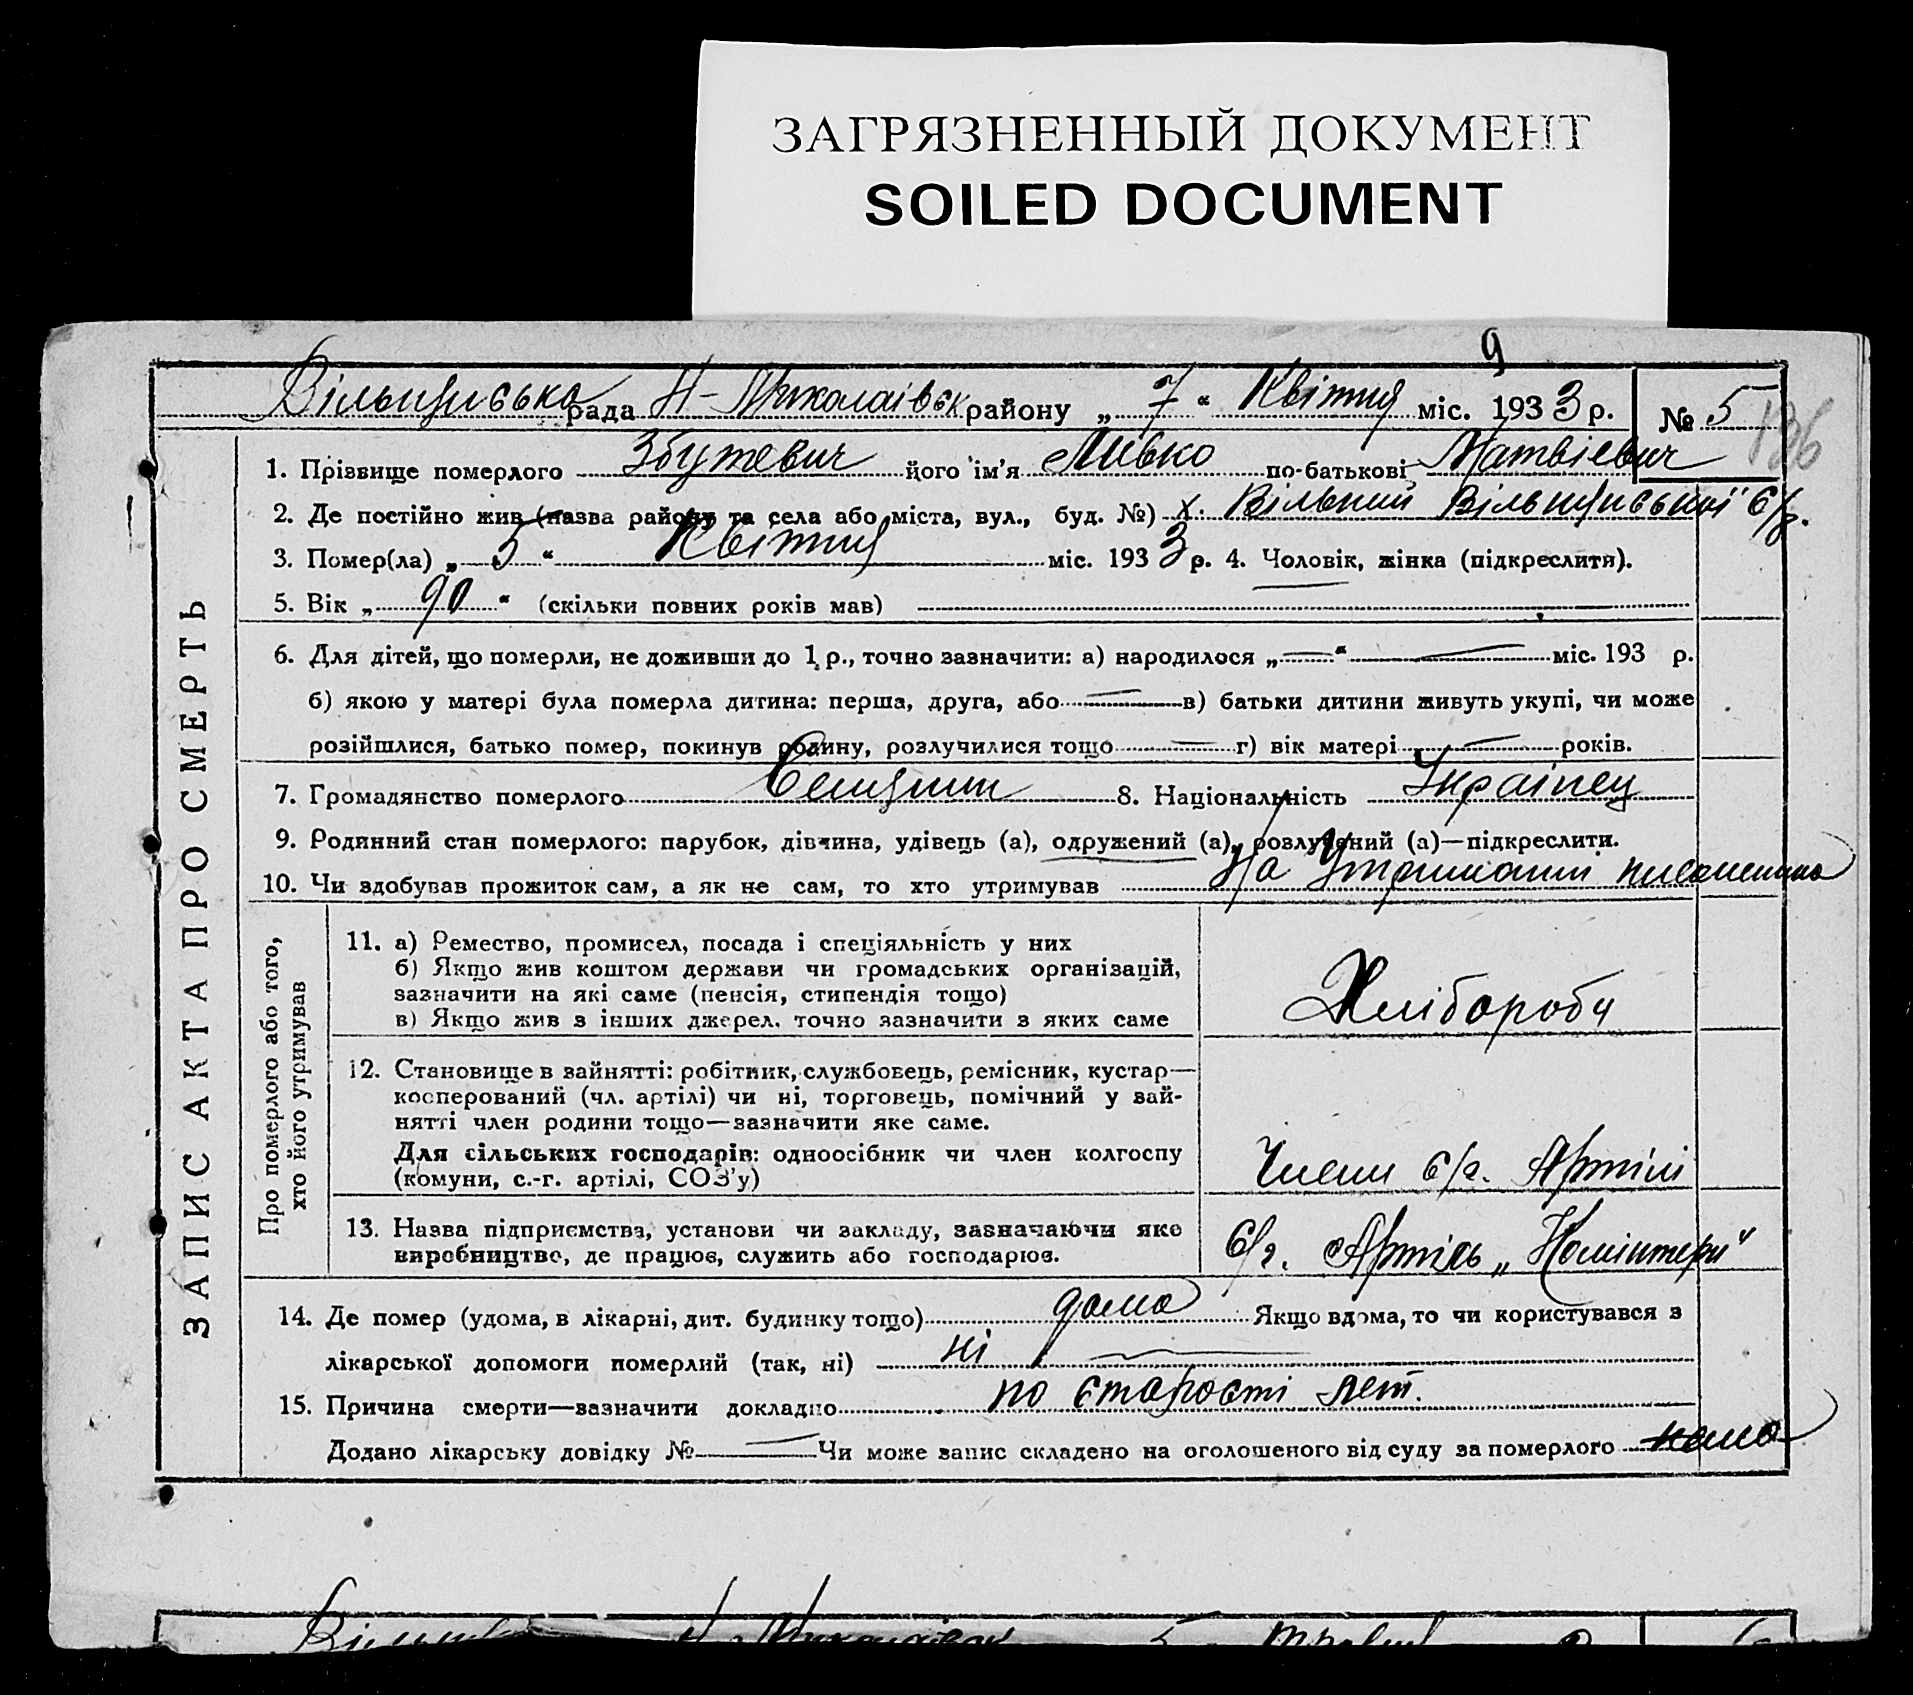 ЗАГРЯЗНЕННЫЙ ДОКУМЕНТ
SOILED DOCUMENT
9
рада Н-Миколаівск району „ 7 “ Квітня міс. 1933 р. № 5
136
1. Прізвище померлого Збутевич його ім'я Ливко по-батькові Матвієвич
2. Де постійно жив (назва району та села або міста, вул., буд. №) х. Вільний с/р.
3. Помер(ла) „ 5 “ Квітня міс. 1933 р. 4. Чоловік, жінка (підкреслити).
5. Вік „ 90 “ (скільки повних років мав)
6. Для дітей, що померли, не доживши до 1 р., точно зазначити: а) народилося „—“ — міс. 193 р.
б) якою у матері була померла дитина: перша, друга, або — в) батьки дитини живуть укупі, чи може
розійшлися, батько помер, покинув родину, розлучилися тощо — г) вік матері — років.
7. Громадянство померлого 8. Національність Украінец
9. Родинний стан померлого: парубок, дівчина, удівець (а), одружений (а), розлучений (а)—підкреслити.
10. Чи здобував прожиток сам, а як не сам, то хто утримував На Утриманні
ЗАПИС АКТА ПРО СМЕРТЬ
Про померлого або того,
хто його утримував
11. а) Ремество, промисел, посада і спеціяльність у них
б) Якщо жив коштом держави чи громадських організацій,
зазначити на які саме (пенсія, стипендія тощо)
в) Якщо жив з інших джерел, точно зазначити з яких саме
Хлібороби
12. Становище в зайнятті: робітник, службовець, ремісник, кустар—
косперований (чл. артілі) чи ні, торговець, помічний у зай-
нятті член родини тощо—зазначити яке саме.
Для сільських господарів: одноосібник чи член колгоспу
(комуни, с.-г. артілі, СОЗ'у)
Члени с/г. Артілі
13. Назва підприємства, установи чи закладу, зазначаючи яке
виробництво, де працюв, служить або господарюв.
с/г. Артіль „Комінтерн“
14. Де помер (удома, в лікарні, дит. будинку тощо) дома Якщо вдома, то чи користувався з
лікарської допомоги померлий (так, ні) ні
15. Причина смерти—зазначити докладно по старості лет.
Додано лікарську довідку № — Чи може запис складено на оголошеного від суду за померлого